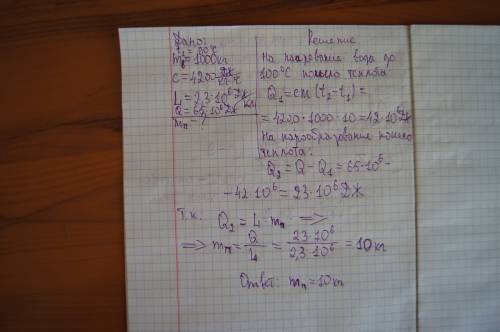 Дано:
m = 1000кг
c = 4200 Дж/кг·°C
L = 2,3·10⁶ Дж/кг
Q = 65·10⁶ Дж
mп - ?
Решение
На нагревание воды до
100°C пошло теплоты
Q₁ = cm (t₂ - t₁) =
= 4200 · 1000 · 10 = 42·10⁶ Дж
На парообразование пошло
теплота:
Q₂ = Q - Q₁ = 65·10⁶ -
- 42·10⁶ = 23·10⁶ Дж
Т.к. Q₂ = L · mп ⇒
⇒ mп = Q/L = 23·10⁶/2,3·10⁶ = 10кг
Ответ: mп = 10кг